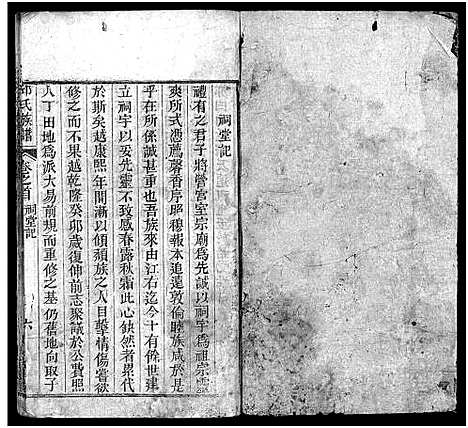 祠堂記
禮有之君子將營宮室宗廟爲先誠以祠宇爲祖宗靈
爽所式憑薦馨香序昭穆報本追遠敦倫睦族咸於是
乎在所係誠甚重也吾族來由江右迄今十有餘世建
立祠宇以妥先靈不致感春露秋霜此心缺然者累代
於斯矣越康熙年間漸以傾頹族之人目擊情傷嘗欲
修之而不果越乾隆癸卯歲復伸前志聚議於公費照
人丁田地爲派大易前規而重修之基仍舊地向取子
氏族譜
卷之首
祠堂記
六